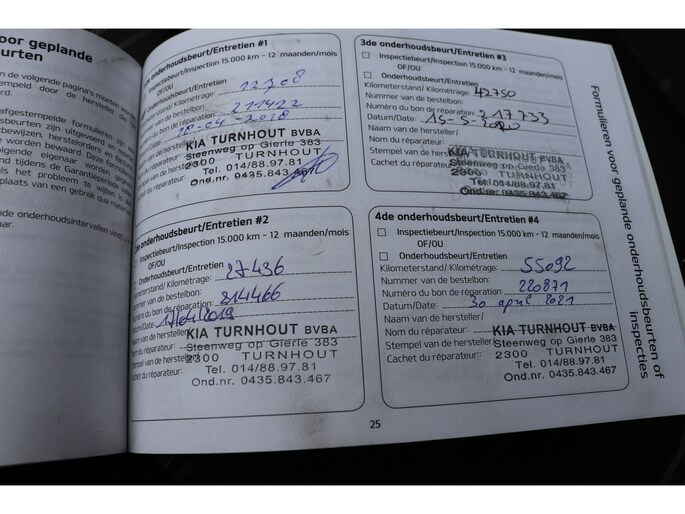 oor geplande
eurten
n de volgende pagina's moeten
empeld door de hersteller die
afgestempelde formulieren zijn
sbeurten zijn uitgevoerd en
bewijzen, herstelorders en
worden bewaard. Deze formulieren
volgende eigenaar worden
nd tijdens de Garantieperiode
ls het probleem te wijten is
plaats van een gebrek qua
de onderhoudsintervallen vindt u
aar.
onderhoudsbeurt/Entretien #1
Inspectiebeurt/Inspection 15.000 km - 12 maanden/mois
OF/OU
Onderhoudsbeurt/Entretien
Kilometerstand/ Kilométrage: 12708
Nummer van de bestelbon:
Numéro du bon de réparation: 211422
Datum/Date: 18-04-2018
KIA TURNHOUT BVBA
Steenweg op Gierle 383
2300 TURNHOUT
Tel. 014/88.97.81
Ond.nr. 0435.843.467
2de onderhoudsbeurt/Entretien #2
Inspectiebeurt/Inspection 15.000 km - 12 maanden/mois
OF/OU
Onderhoudsbeurt/Entretien
Kilometerstand/ Kilométrage: 27436
Nummer van de bestelbon:
Numéro du bon de réparation: 214466
Datum/Date: 17/04/2019
Naam van de hersteller/
Nom du réparateur:
Stempel van de hersteller/
Cachet du réparateur:
KIA TURNHOUT BVBA
Steenweg op Gierle 383
2300 TURNHOUT
Tel. 014/88.97.81
Ond.nr. 0435.843.467
3de onderhoudsbeurt/Entretien #3
Inspectiebeurt/Inspection 15.000 km - 12 maanden/mois
OF/OU
Onderhoudsbeurt/Entretien
Kilometerstand/ Kilométrage: 42750
Nummer van de bestelbon:
Numéro du bon de réparation: 217733
Datum/Date: 15-5-2020
Naam van de hersteller/
Nom du réparateur:
Stempel van de hersteller/
Cachet du réparateur:
KIA TURNHOUT BVBA
Steenweg op Gierle 383
2300 TURNHOUT
Tel. 014/88.97.81
Ond.nr. 0435.843.467
4de onderhoudsbeurt/Entretien #4
Inspectiebeurt/Inspection 15.000 km - 12 maanden/mois
OF/OU
Onderhoudsbeurt/Entretien
Kilometerstand/ Kilométrage: 55092
Nummer van de bestelbon:
Numéro du bon de réparation: 220871
Datum/Date: 30 april 2021
Naam van de hersteller/
Nom du réparateur:
Stempel van de hersteller/
Cachet du réparateur:
KIA TURNHOUT BVBA
Steenweg op Gierle 383
2300 TURNHOUT
Tel. 014/88.97.81
Ond.nr. 0435.843.467
25
Formulieren voor geplande onderhoudsbeurten of
inspecties